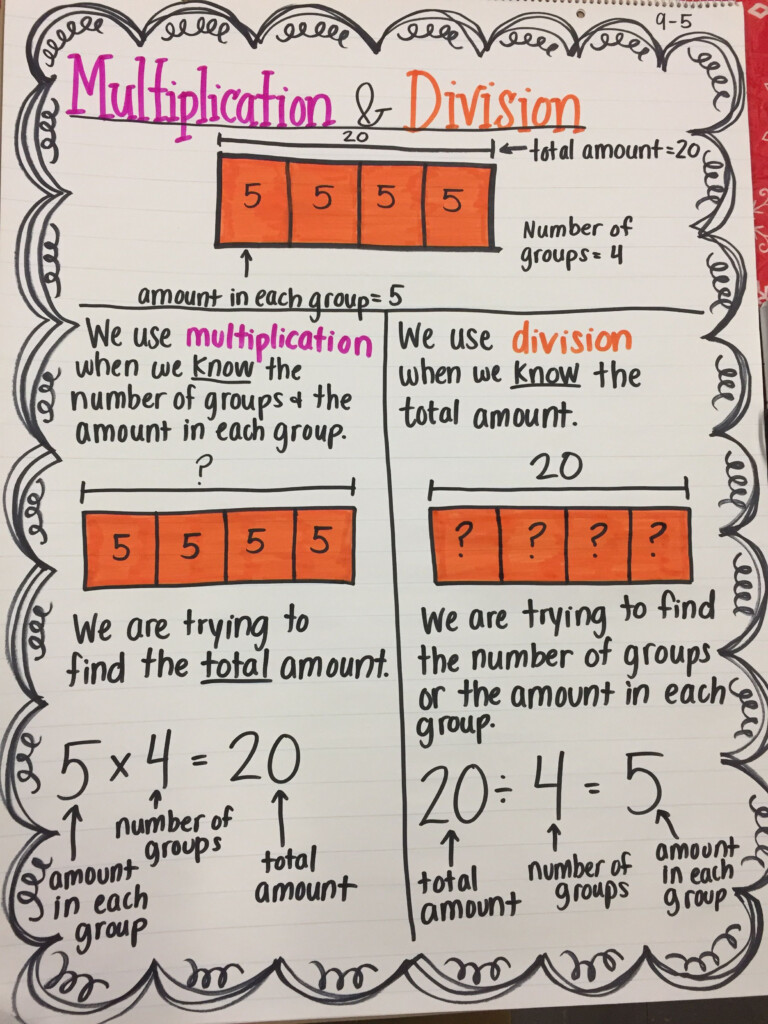 9-5
Multiplication & Division
20
← total amount=20
5 5 5 5
Number of
groups= 4
amount in each group= 5
We use multiplication
when we know the
number of groups & the
amount in each group.
?
5 5 5 5
We are trying to
find the total amount.
5 x 4 = 20
number of
groups
total
amount
amount
in each
group
We use division
when we know the
total amount.
20
? ? ? ?
We are trying to find
the number of groups
or the amount in each
group.
20 ÷ 4 = 5
total
amount
number of
groups
amount
in each
group